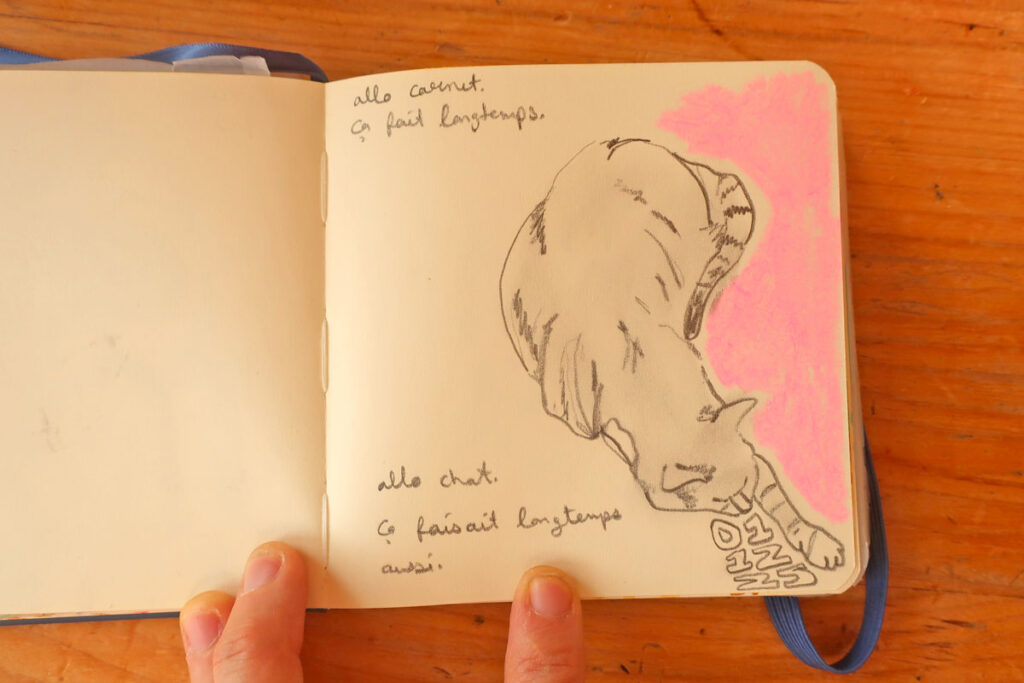 allo carnet.
ça fait longtemps.
allo chat.
ça faisait longtemps
aussi.